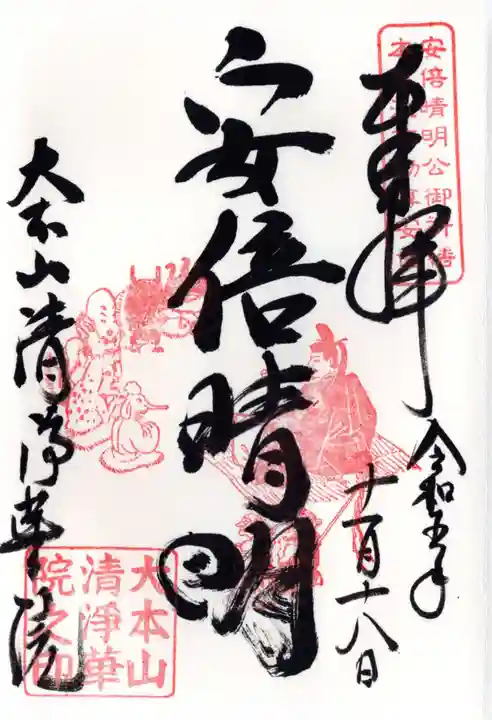 奉拝
令和五年
十一月十八日
安倍晴明公御祈祷
安倍晴明
大本山清浄華院
大本山
清淨華
院之印